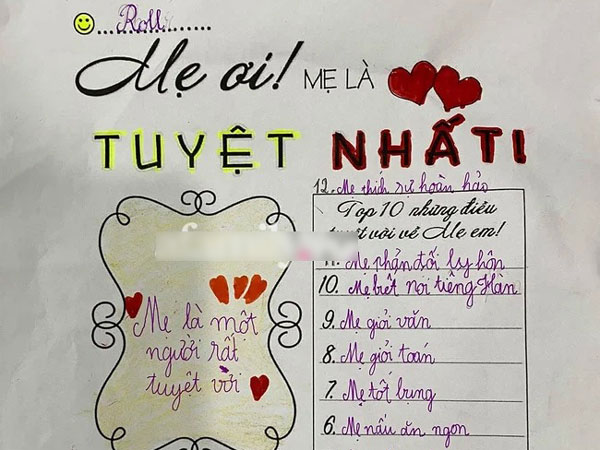 Roll
Mẹ ơi! MẸ LÀ
TUYỆT NHẤT!
12. Mẹ thích sự hoàn hảo
Top 10 những điều
tuyệt vời về Mẹ em!
11. Mẹ phản đối ly hôn
10. Mẹ biết nói tiếng Hàn
9. Mẹ giỏi văn
8. Mẹ giỏi toán
7. Mẹ tốt bụng
6. Mẹ nấu ăn ngon
Mẹ là một
người rất
tuyệt vời